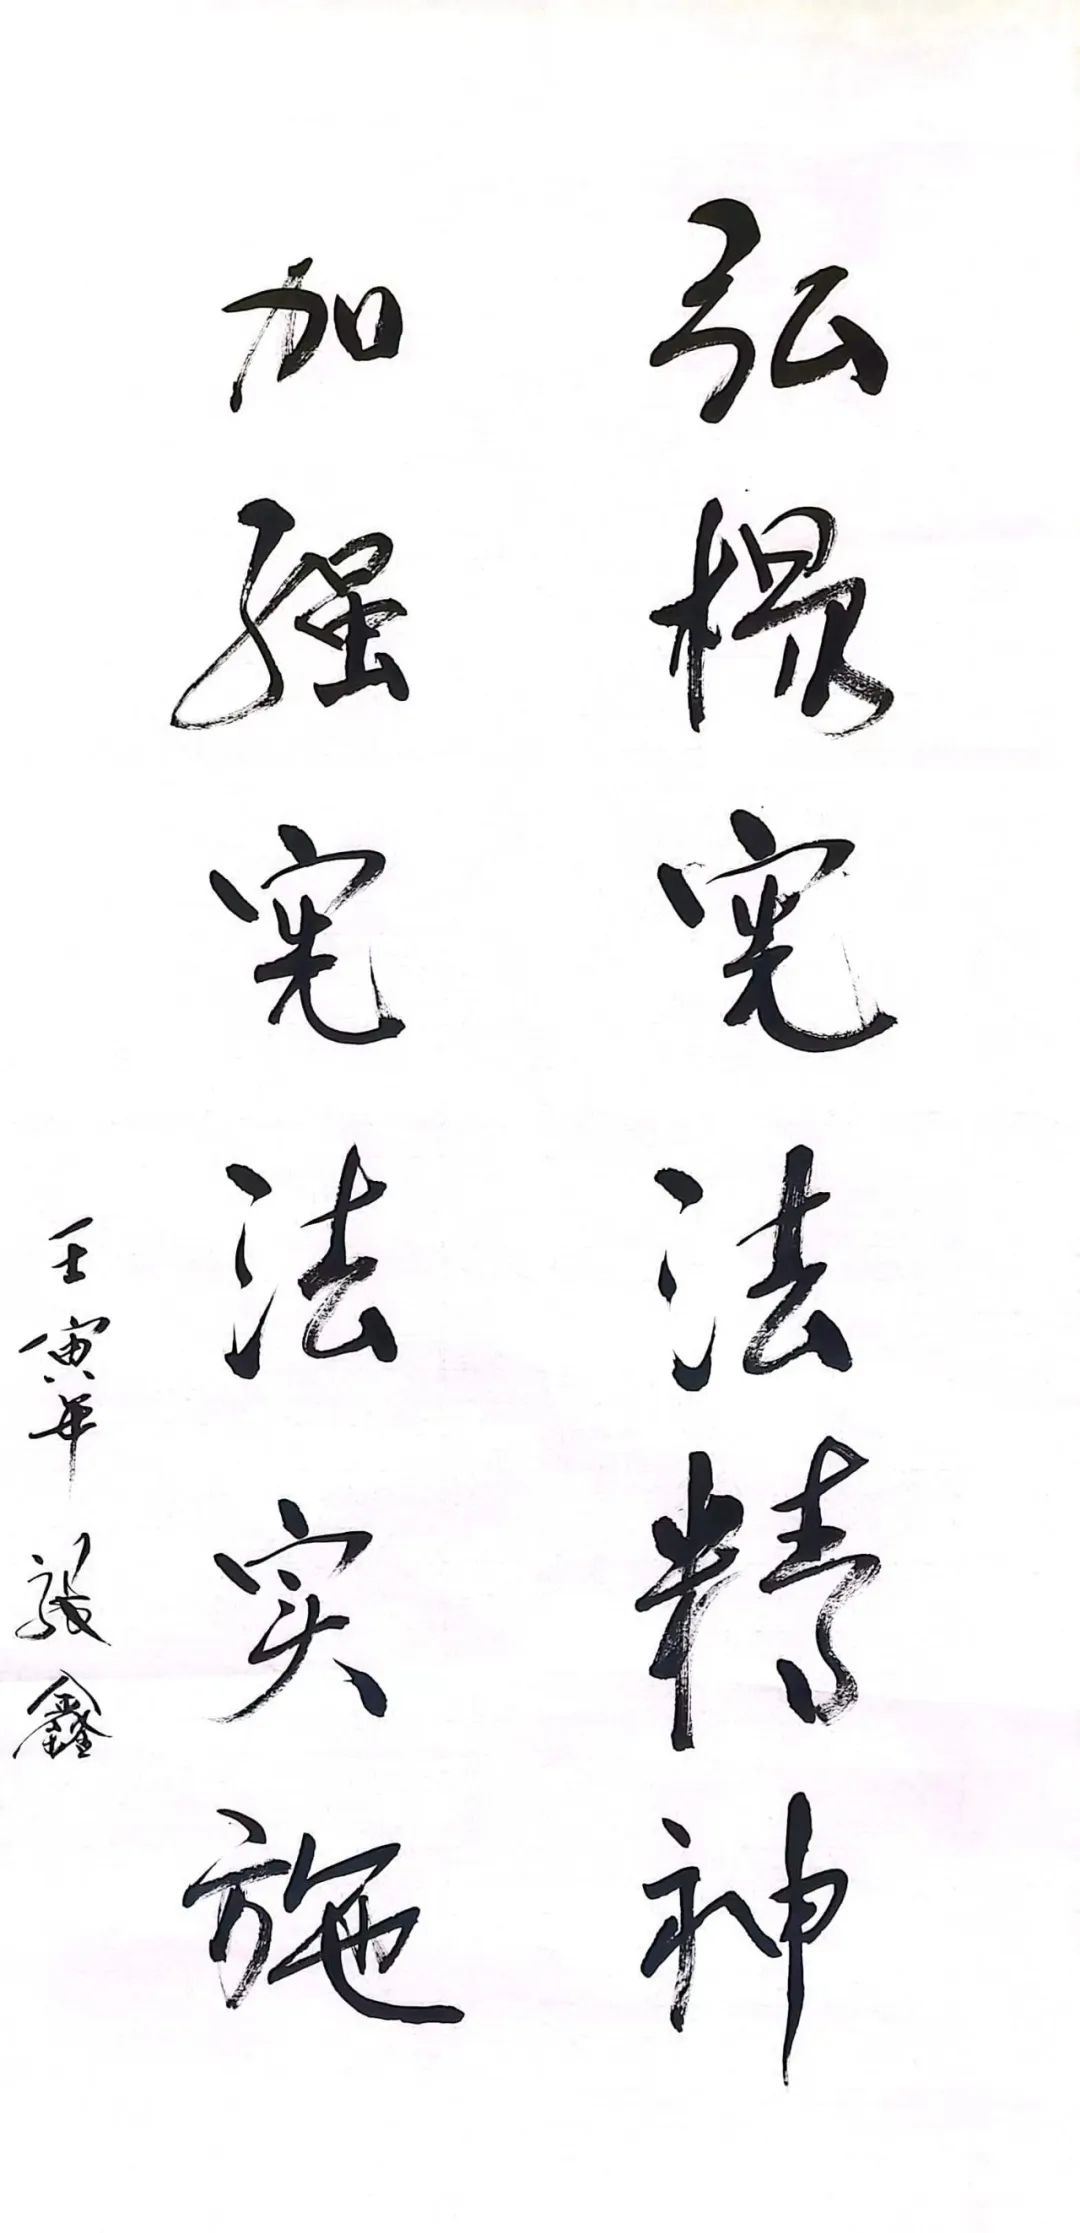 弘扬宪法精神
加强宪法实施
壬寅年 张鑫